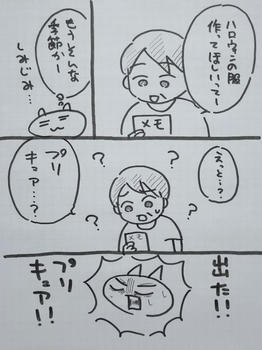 ハロウィンの服
作ってほしいってー
メモ
もうそんな
季節かー
しみじみ…
えっと…?
?
?
?
?
プリ
キュア…?
出た!!
プリ
キュア!!